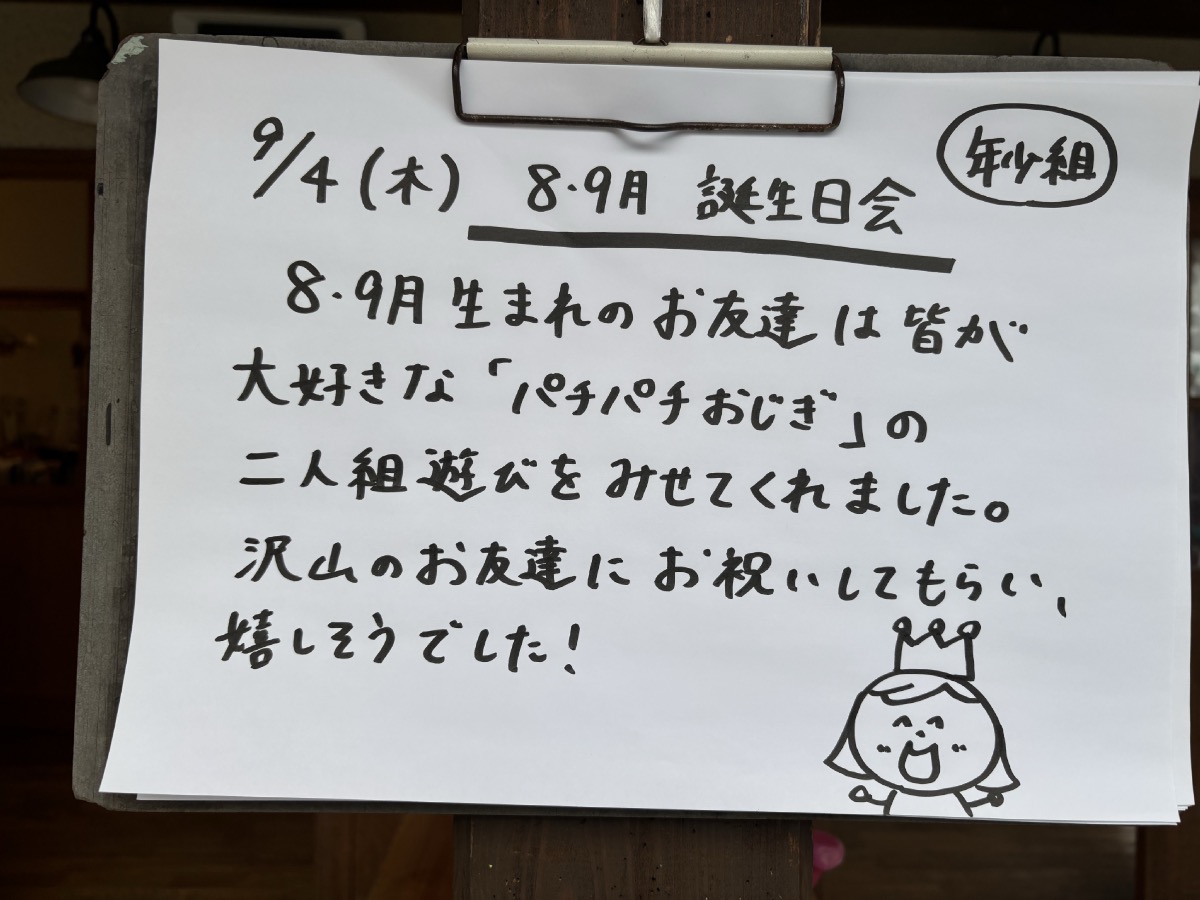 年少組
9/4(木) 8・9月 誕生日会
8・9月生まれのお友達は皆が
大好きな「パチパチおじぎ」の
二人組遊びをみせてくれました。
沢山のお友達にお祝いしてもらい、
嬉しそうでした!